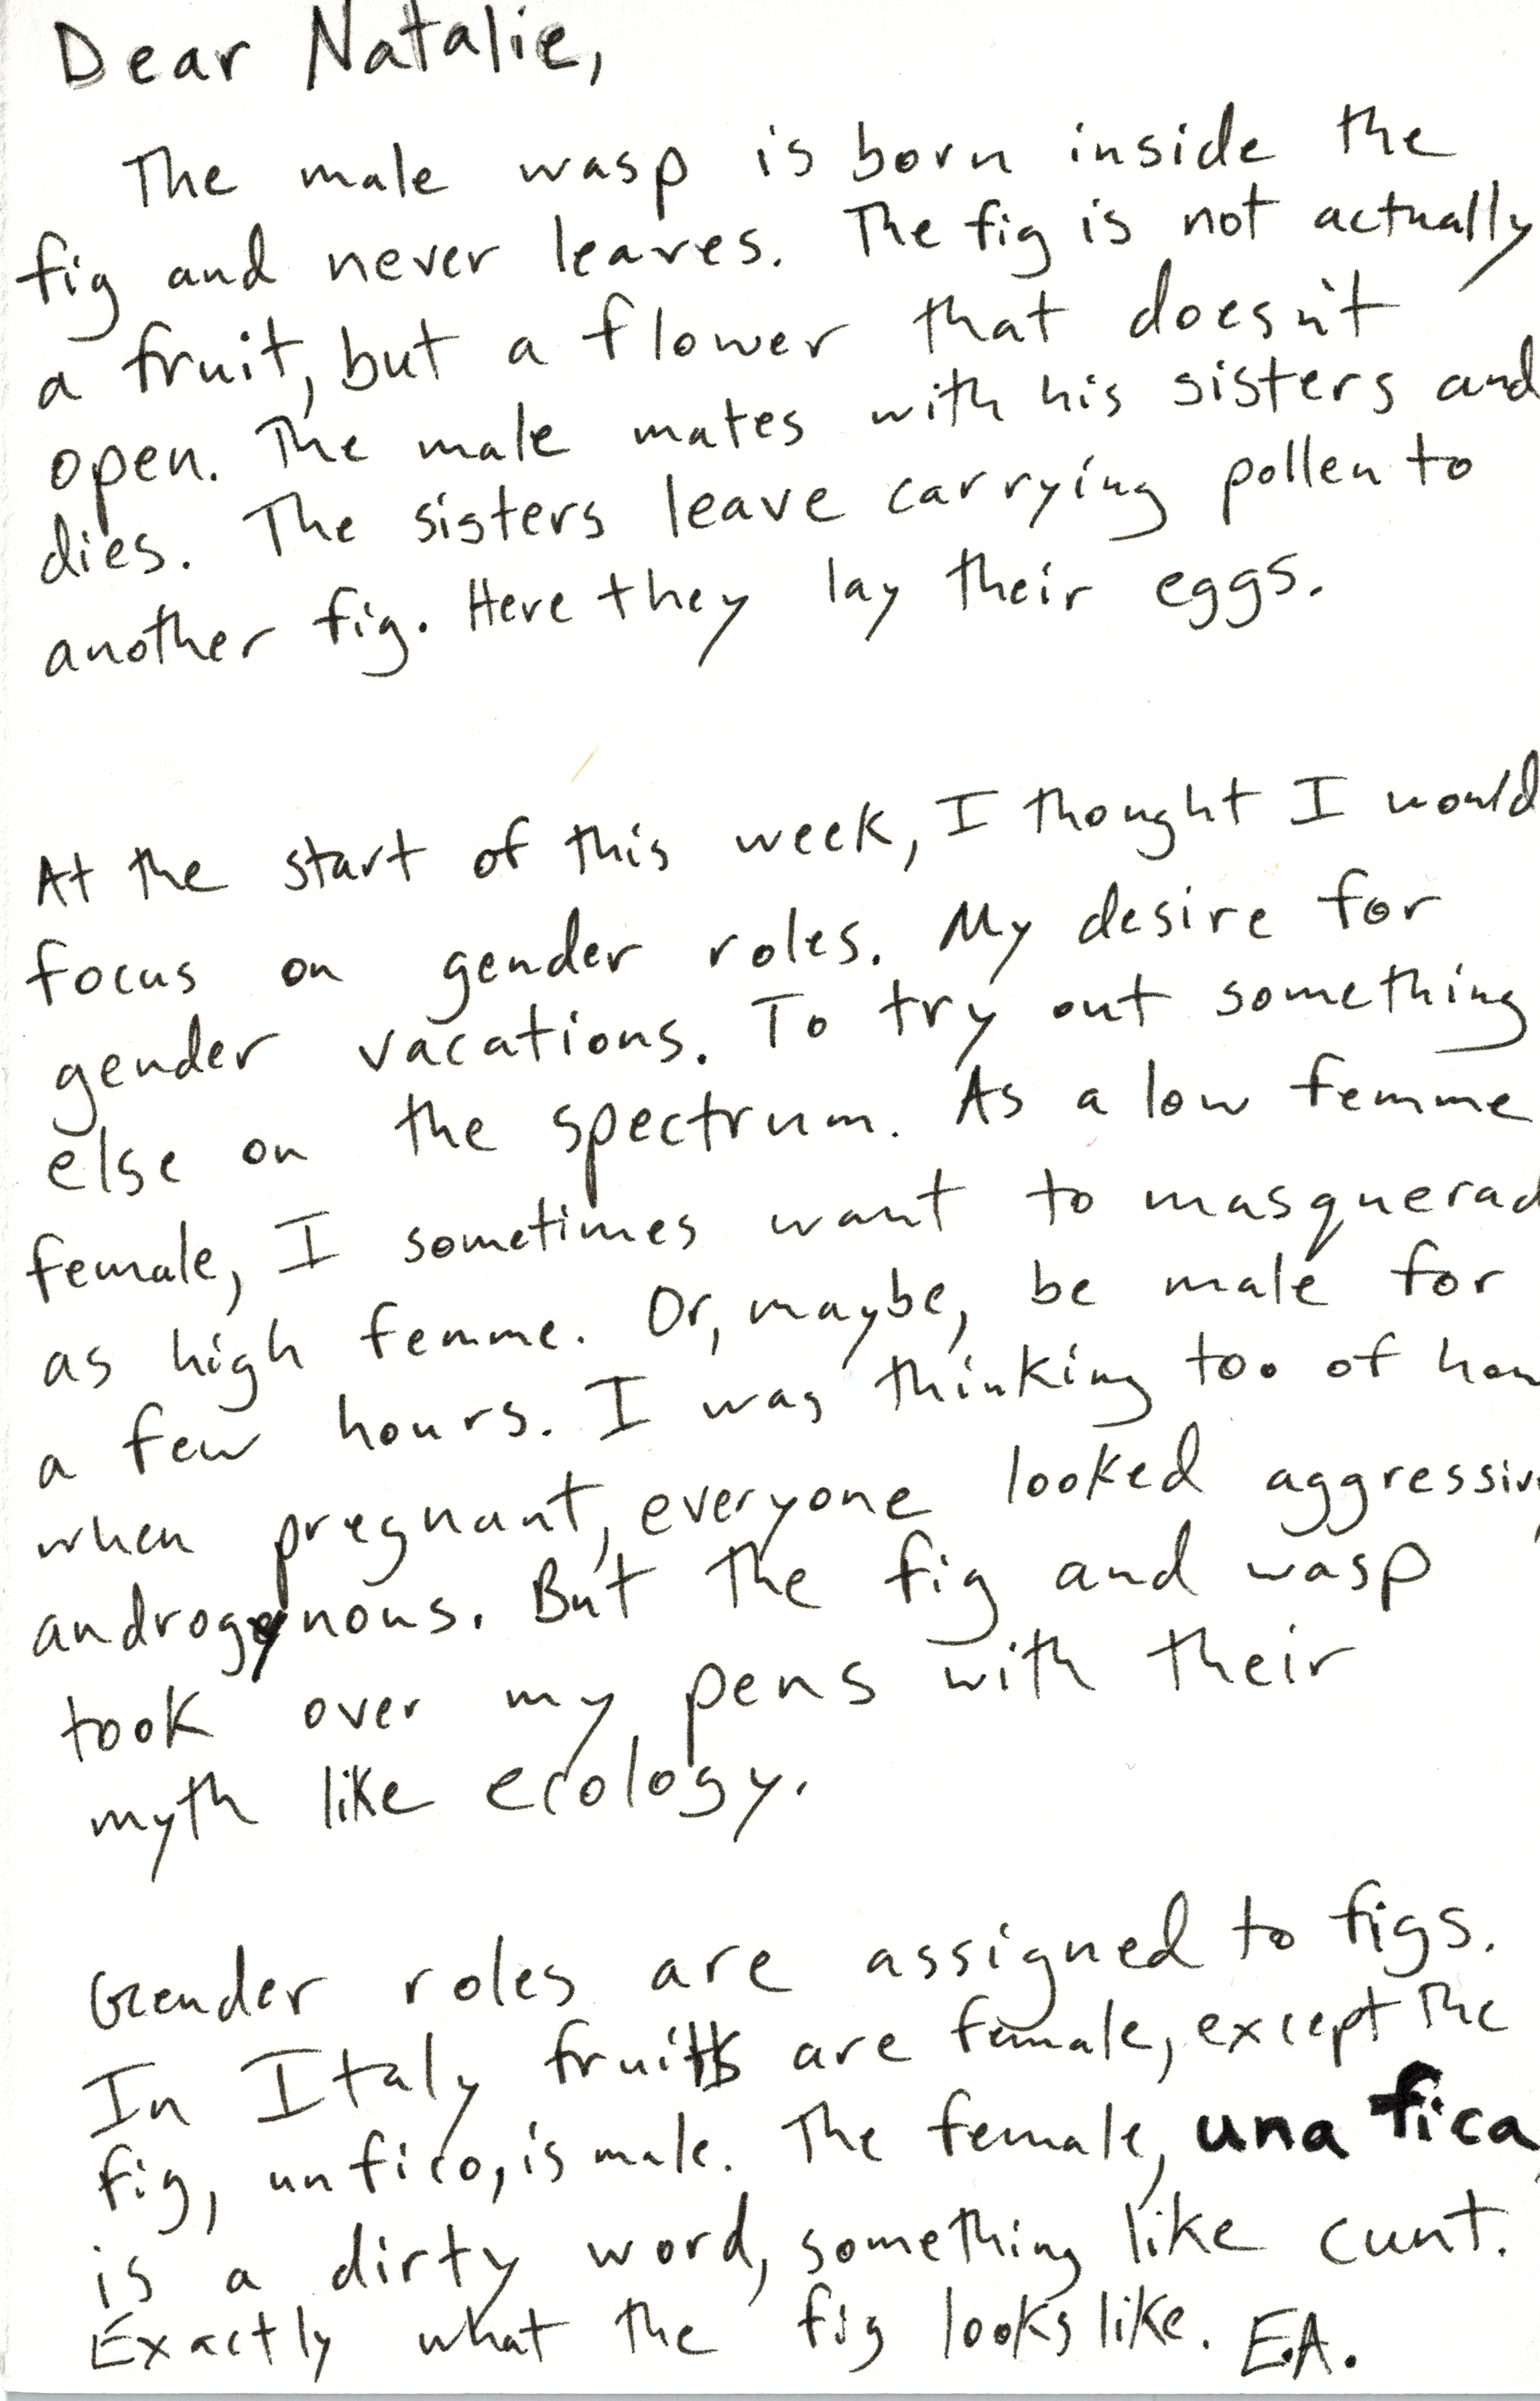 Dear Natalie,
The male wasp is born inside the
fig and never leaves. The fig is not actually
a fruit, but a flower that doesn't
open. The male mates with his sisters and
dies. The sisters leave carrying pollen to
another fig. Here they lay their eggs.
At the start of this week, I thought I would
focus on gender roles. My desire for
gender vacations. To try out something
else on the spectrum. As a low femme
female, I sometimes want to masquerad
as high femme. Or, maybe, be male for
a few hours. I was thinking too of how
when pregnant, everyone looked aggressiv
androgynous. But the fig and wasp
took over my pens with their
myth like ecology.
Gender roles are assigned to figs.
In Italy fruits are female, except the
fig, un fico, is male. The female, una fica,
is a dirty word, something like cunt.
Exactly what the fig looks like. E.A.